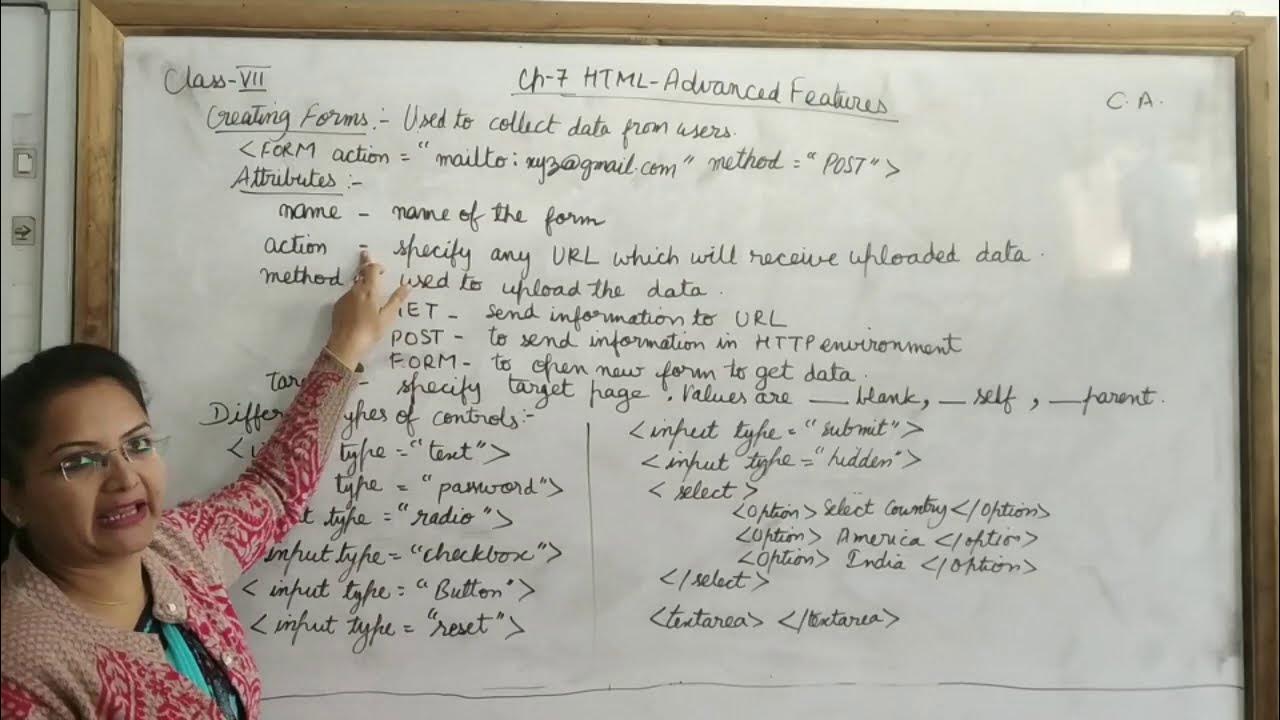 Class-VII
Ch-7 HTML-Advanced Features
C.A.
Creating Forms:- Used to collect data from users.
<FORM action = "mailto:xyz@gmail.com" method = "POST">
Attributes:-
name - name of the form
action - specify any URL which will receive uploaded data.
method used to upload the data.
ET - send information to URL
POST - to send information in HTTP environment
FORM - to open new form to get data.
Ta - specify target page. Values are __blank, __self, __parent.
Diffe ypes of controls:-
< type = "text">
type = "password">
t type = "radio">
input type = "checkbox">
< input type = "Button">
< input type = "reset">
<input type = "submit">
<input type = "hidden">
< select >
<Option> Select Country </Option>
<Option> America </option>
<Option> India </Option>
</select>
<textarea> </textarea>